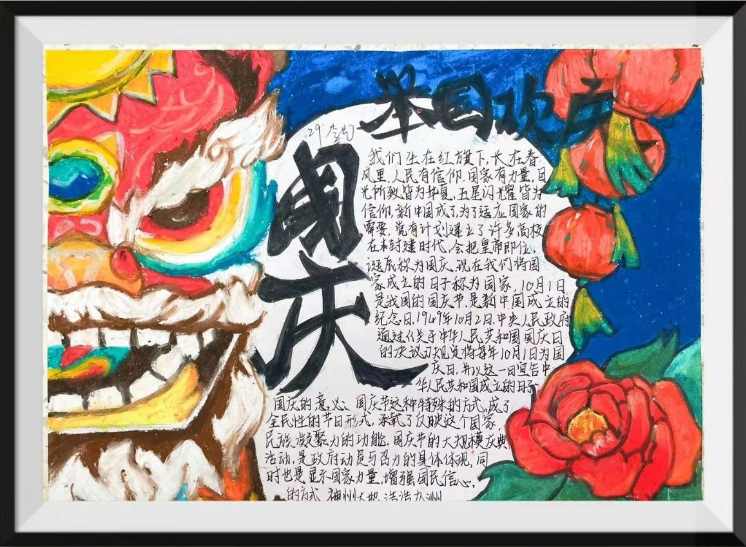 举国欢庆
国庆
我们生在红旗下,长在春
风里,人民有信仰,国家有力量,目
光所致皆为华夏,五星闪耀皆为
信仰,新中国成了,为了适应国家的
需要,党有计划建立了许多高校
在未封建时代,会把皇帝即位、
诞辰称为国庆,现在我们将国
家成立的日子称为国家,10月1日
是我国的国庆节,是新中国成立的
纪念日,1949年10月2日,中央人民政府
通过《关于中华人民共和国国庆日
的决议》规定将每年10月1日为国
庆日,并以这一日宣告中
华人民共和国成立的日子
国庆的意义、国庆节这种特殊的方式,成了
全民性的节日形式,承载了反映这个国家,
民族凝聚力的功能,国庆节的大规模庆典
活动,是政府动员与召力的具体体现,同
时也是显示国家力量,增强国民信心,
的方式